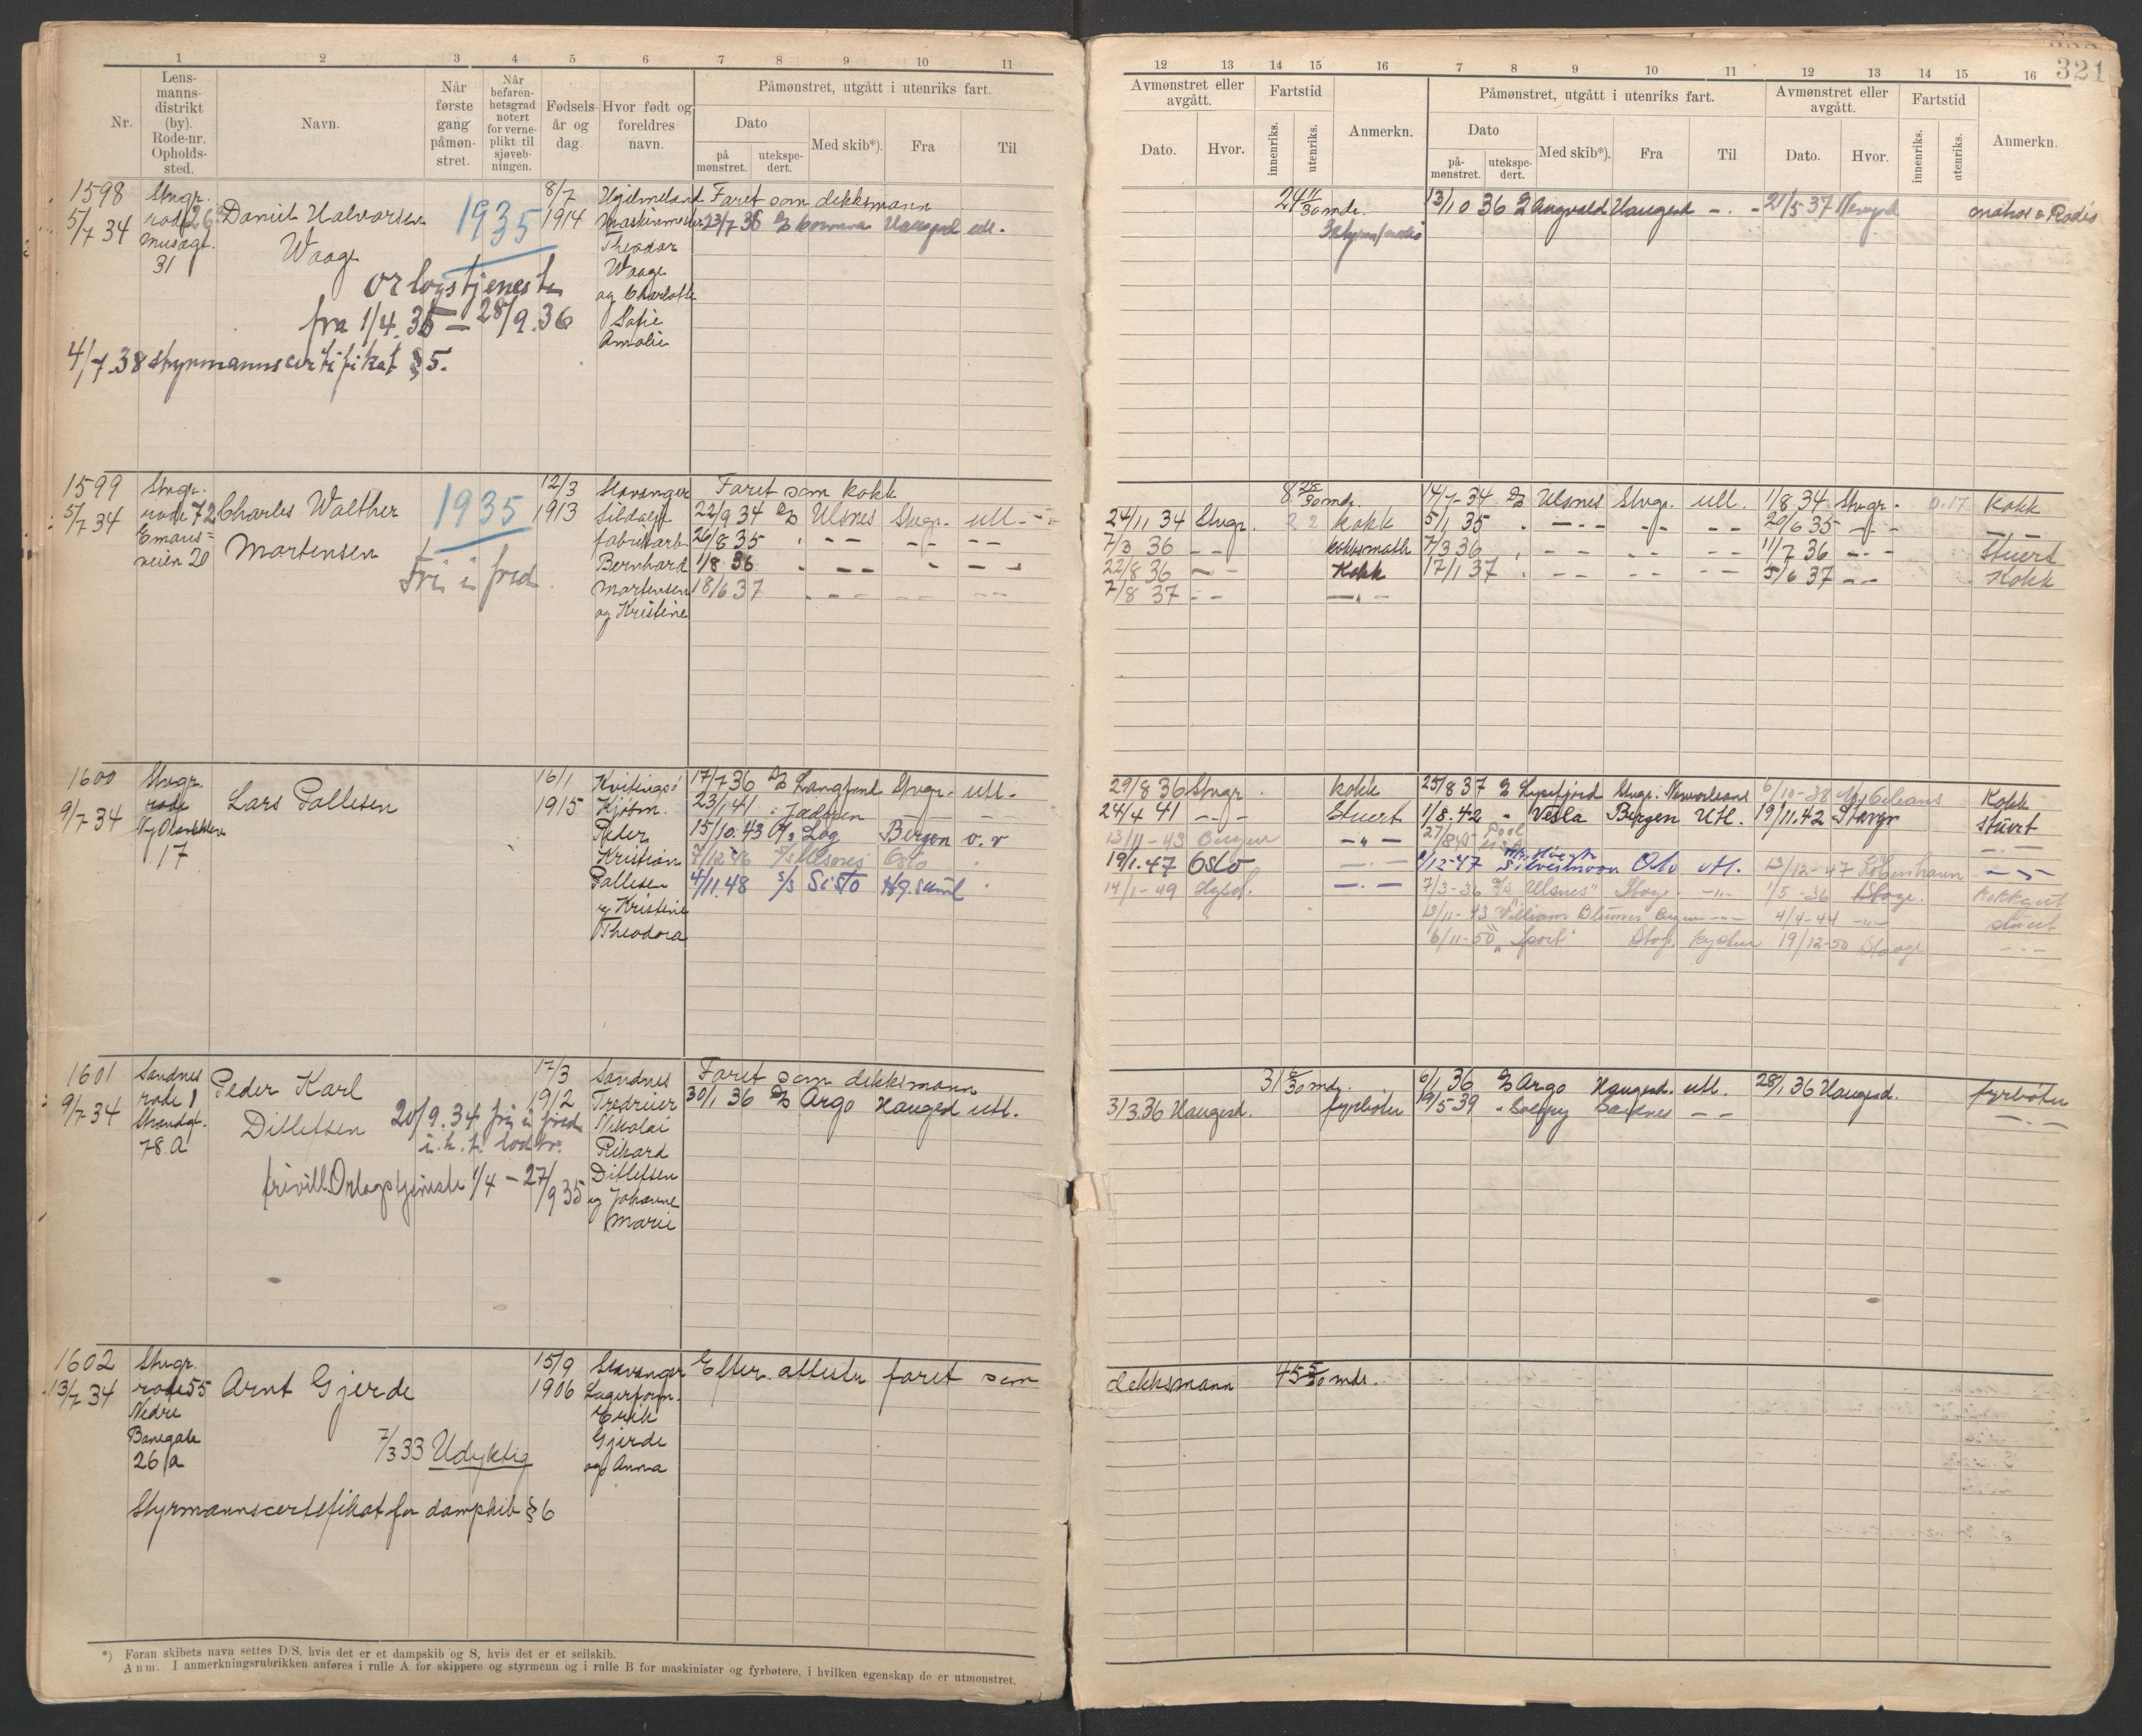 321
1 2 3 4 5 6 7 8 9 10 11
Nr.
Lens-
manns-
distrikt
(by).
Rode-nr.
Opholds-
sted.
Navn.
Når
første
gang
påmøn-
stret.
Når
befaren-
hetsgrad
notert
for verne-
plikt til
sjøveb-
ningen.
Fødsels-
år og
dag.
Hvor født og
foreldres
navn.
Påmønstret, utgått i utenriks fart.
Dato
på
mønstret.
utekspe-
dert.
Med skib*).
Fra
Til
12 13 14 15 16 7 8 9 10 11 12 13 14 15 16
Avmønstret eller
avgått.
Dato.
Hvor.
Fartstid
innenriks.
utenriks.
Anmerkn.
Påmønstret, utgått i utenriks fart.
Dato
på-
mønstret.
utekspe-
dert.
Med skib*).
Fra
Til
Avmønstret eller
avgått.
Dato.
Hvor.
Fartstid
innenriks.
utenriks.
Anmerkn.
1598
5/7 34
Stvgr.
rode 26
Musegt.
31
Daniel Halvorsen
Waage
1935
orlogstjeneste
fra 1/4.35 – 28/9.36
4/7.38 styrmannscertifikat §5.
8/7
1914
Hjelmeland
Maskinmester
Theodor
Waage
og Charlotte
Sofie
Amalie
Faret som dekksmann
23/7 36 Haugesd utl.
24 11/30 mdr.
13/10 36 Haugesd - . -
21/5 37
1599
5/7 34
Stvgr.
rode 72
Emaus-
veien 20
Charles Walther
Martensen
1935
Fri i fred.
12/3
1913
Stavanger
fabrikarb
Bernhard
Martensen
og Kristine
Faret som kokk
22/9 34 D/S Ulsnes Stvgr. utl.
26/8 35 - - - - - -
1/8 36 - - - - - -
18/6 37 - - - - - -
8 28/30 mdr.
24/11 34 Stvgr. kokk
7/3 36 - - kokksmath
22/8 36 - - Kokk
7/8 37 - - - " -
14/7-34 D/S Ulsnes Stvgr. utl. 1/8 34 Stvgr. Kokk
5/1 35 - - - - - - 20/6 35 - -
7/3 36 - - - - - - 11/7 36 - - Stuert
17/1 37 - - - - - - 5/6 37 - - Kokk
1600
9/7 34
Stvgr.
rode
Ny Olavskleiv
17
Lars Pallesen
16/1
1915
Kvitingsø
Kjøtm.
Peder
Kristian
Pallesen
og Kristine
Theodora
17/7 36 D/S Langfond Stvgr. utl.
23/1 41 " Jadaren - -
15/10.43 Log Bergen v.v
7/12 46 S/S Ulsnes Oslo
4/11.48 S/S Sisto
29/8 36 Stvgr. kokk
24/4 41 - - - Stuert
13/11-43 Bergen - " -
19/1.47 Oslo - . -
14/1-49 - . -
25/8 37 D/S Lysefjord Stvgr. Neworleans 6/10-38 Kokk
1/8.42 - Vesla Bergen Utl. 19/11.42 Stavgr Stuert
27/8 45 Pool
9/12-47 Silvestnoon Oslo utl. 13/12-47 København
7/3-36 D/S "Ulsnes" Stvgr. - " - 1/5-36 Stvgr.
13/11-43 William Blumer Bergen 4/4-44 - " - stuert
6/11-50 " Sport" Stvg. kysten 19/12-50 Stavgr - . -
1601
9/7 34
Sandnes
rode 1
Strandgt.
78.A
Peder Karl
Ditlefsen
20/9.34 fri i fred
i.h.t. lodtr.
frivill. Orlogstjeneste 1/4 – 27/9 35
17/3
1912
Sandnes
Tredreier
Nikolai
Rikard
Ditlefsen
og Johanne
Marie
Faret som dekksmann
30/1 36 D/S Argo Haugesd utl.
31 6/30 mdr.
3/3.36 Haugesd. fyrbøter
6/1 36 D/S Argo Haugesd. utl. 28/1 36 Haugesd. fyrbøter
19/5 39 " Solguy - - - . -
1602
13/7 34
Stvgr.
rode 55
Nedre
Banegate
26/a
Arnt Gjerde
7/3 33 Udyktig
Styrmannscertefikat for dampskib § 6
15/9
1906
Stavanger
Lagerform.
Erik
Gjerde
og Anna
Efter attester faret som
dekksmann 45 5/30 mdr.
*) Foran skibets navn settes D/S, hvis det er et dampskib og S, hvis det er et seilskib.
Anm. I anmerkningsrubrikken anføres i rulle A for skippere og styrmenn og i rulle B for maskinister og fyrbøtere, i hvilken egenskap de er utmønstret.